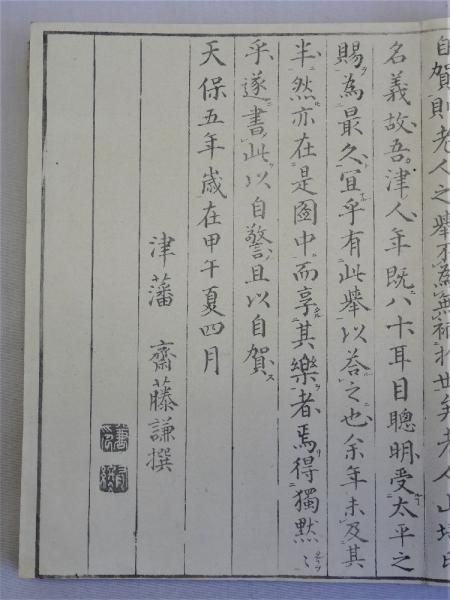 自賀則老人之舉不為無補於世矣老人山
名義故吾津人年既八十耳目聰明受太平之
賜為最久宜乎有此舉以荅之也余年未及其
半然亦在是圖中而享其樂者焉得獨默〻
乎遂書此以自警且以自賀
天保五年歳在甲午夏四月
津藩　齋藤謙撰